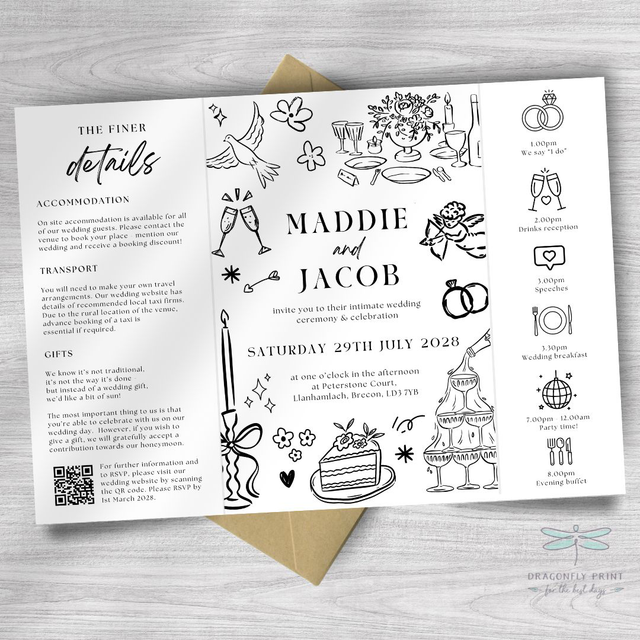 THE FINER
details
ACCOMMODATION
On site accommodation is available for all
of our wedding guests. Please contact the
venue to book your place - mention our
wedding and receive a booking discount!
TRANSPORT
You will need to make your own travel
arrangements. Our wedding website has
details of recommended local taxi firms.
Due to the rural location of the venue,
advance booking of a taxi is
essential if required.
GIFTS
We know it's not traditional,
it's not the way it's done
but instead of a wedding gift,
we'd like a bit of sun!
The most important thing to us is that
you're able to celebrate with us on our
wedding day. However, if you wish to
give a gift, we will gratefully accept a
contribution towards our honeymoon.
For further information and
to RSVP, please visit our
wedding website by scanning
the QR code. Please RSVP by
1st March 2028.
MADDIE
and
JACOB
invite you to their intimate wedding
ceremony & celebration
SATURDAY 29TH JULY 2028
at one o'clock in the afternoon
at Peterstone Court,
Llanhamlach, Brecon, LD3 7YB
1.00pm
We say "I do"
2.00pm
Drinks reception
3.00pm
Speeches
3.30pm
Wedding breakfast
7.00pm - 12.00am
Party time!
8.00pm
Evening buffet
DRAGONFLY PRINT
for the best days